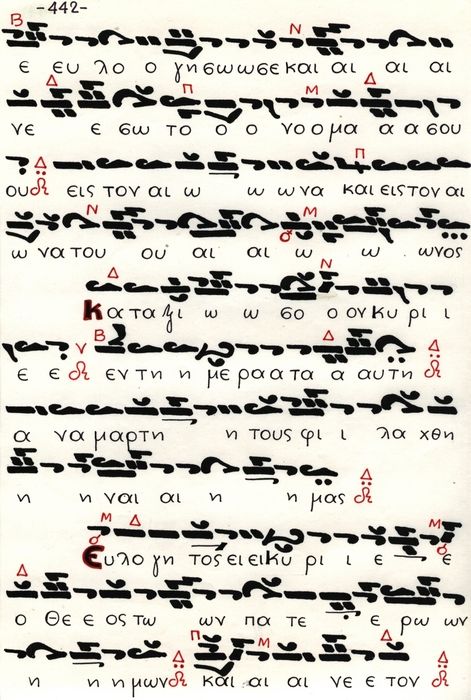 -442-
ε ευ λο ο γη σω ω σε και αι αι αι
νε ε σω το ο ο νο ο μα α α σου
ου εις τον αι ω ω ω να και εις τον αι
ω να του ου αι αι ω ω ω νος
Κα τα ξι ω ω σο ο ον Κυ ρι ι
ε ε εν τη η με ρα α τα α αυ τη
α να μαρ τη η τους φι ι λα χθη
η η ναι αι η η μας
Ευ λο γη τος ει ει Κυ ρι ι ε ε
ο Θε ε ος τω ων πα τε ε ρω ων
η η η μων και αι αι νε ε τον